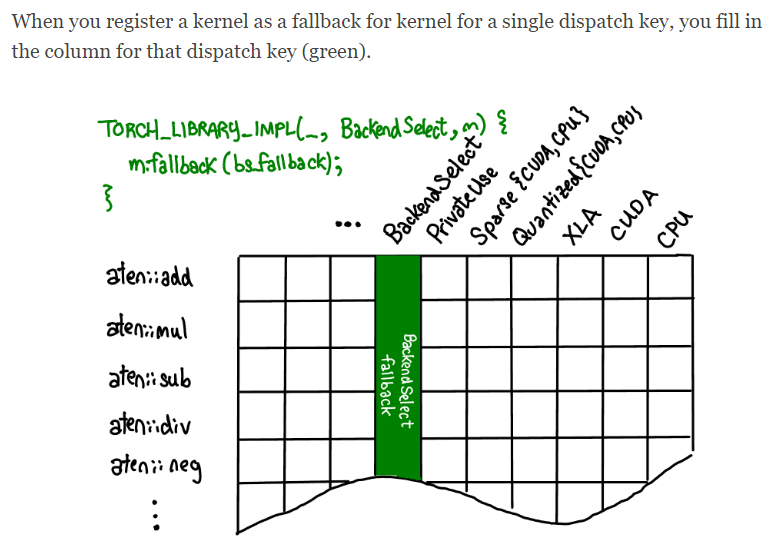 When you register a kernel as a fallback for kernel for a single dispatch key, you fill in
the column for that dispatch key (green).
TORCH_LIBRARY_IMPL(_, BackendSelect, m) {
m.fallback (bs_fallback);
}
... BackendSelect PrivateUse Sparse {CUDA, CPU} Quantized {CUDA, CPU} XLA CUDA CPU
aten::add
aten::mul
aten::sub
aten::div
aten::neg
⋮
BackendSelect
fallback